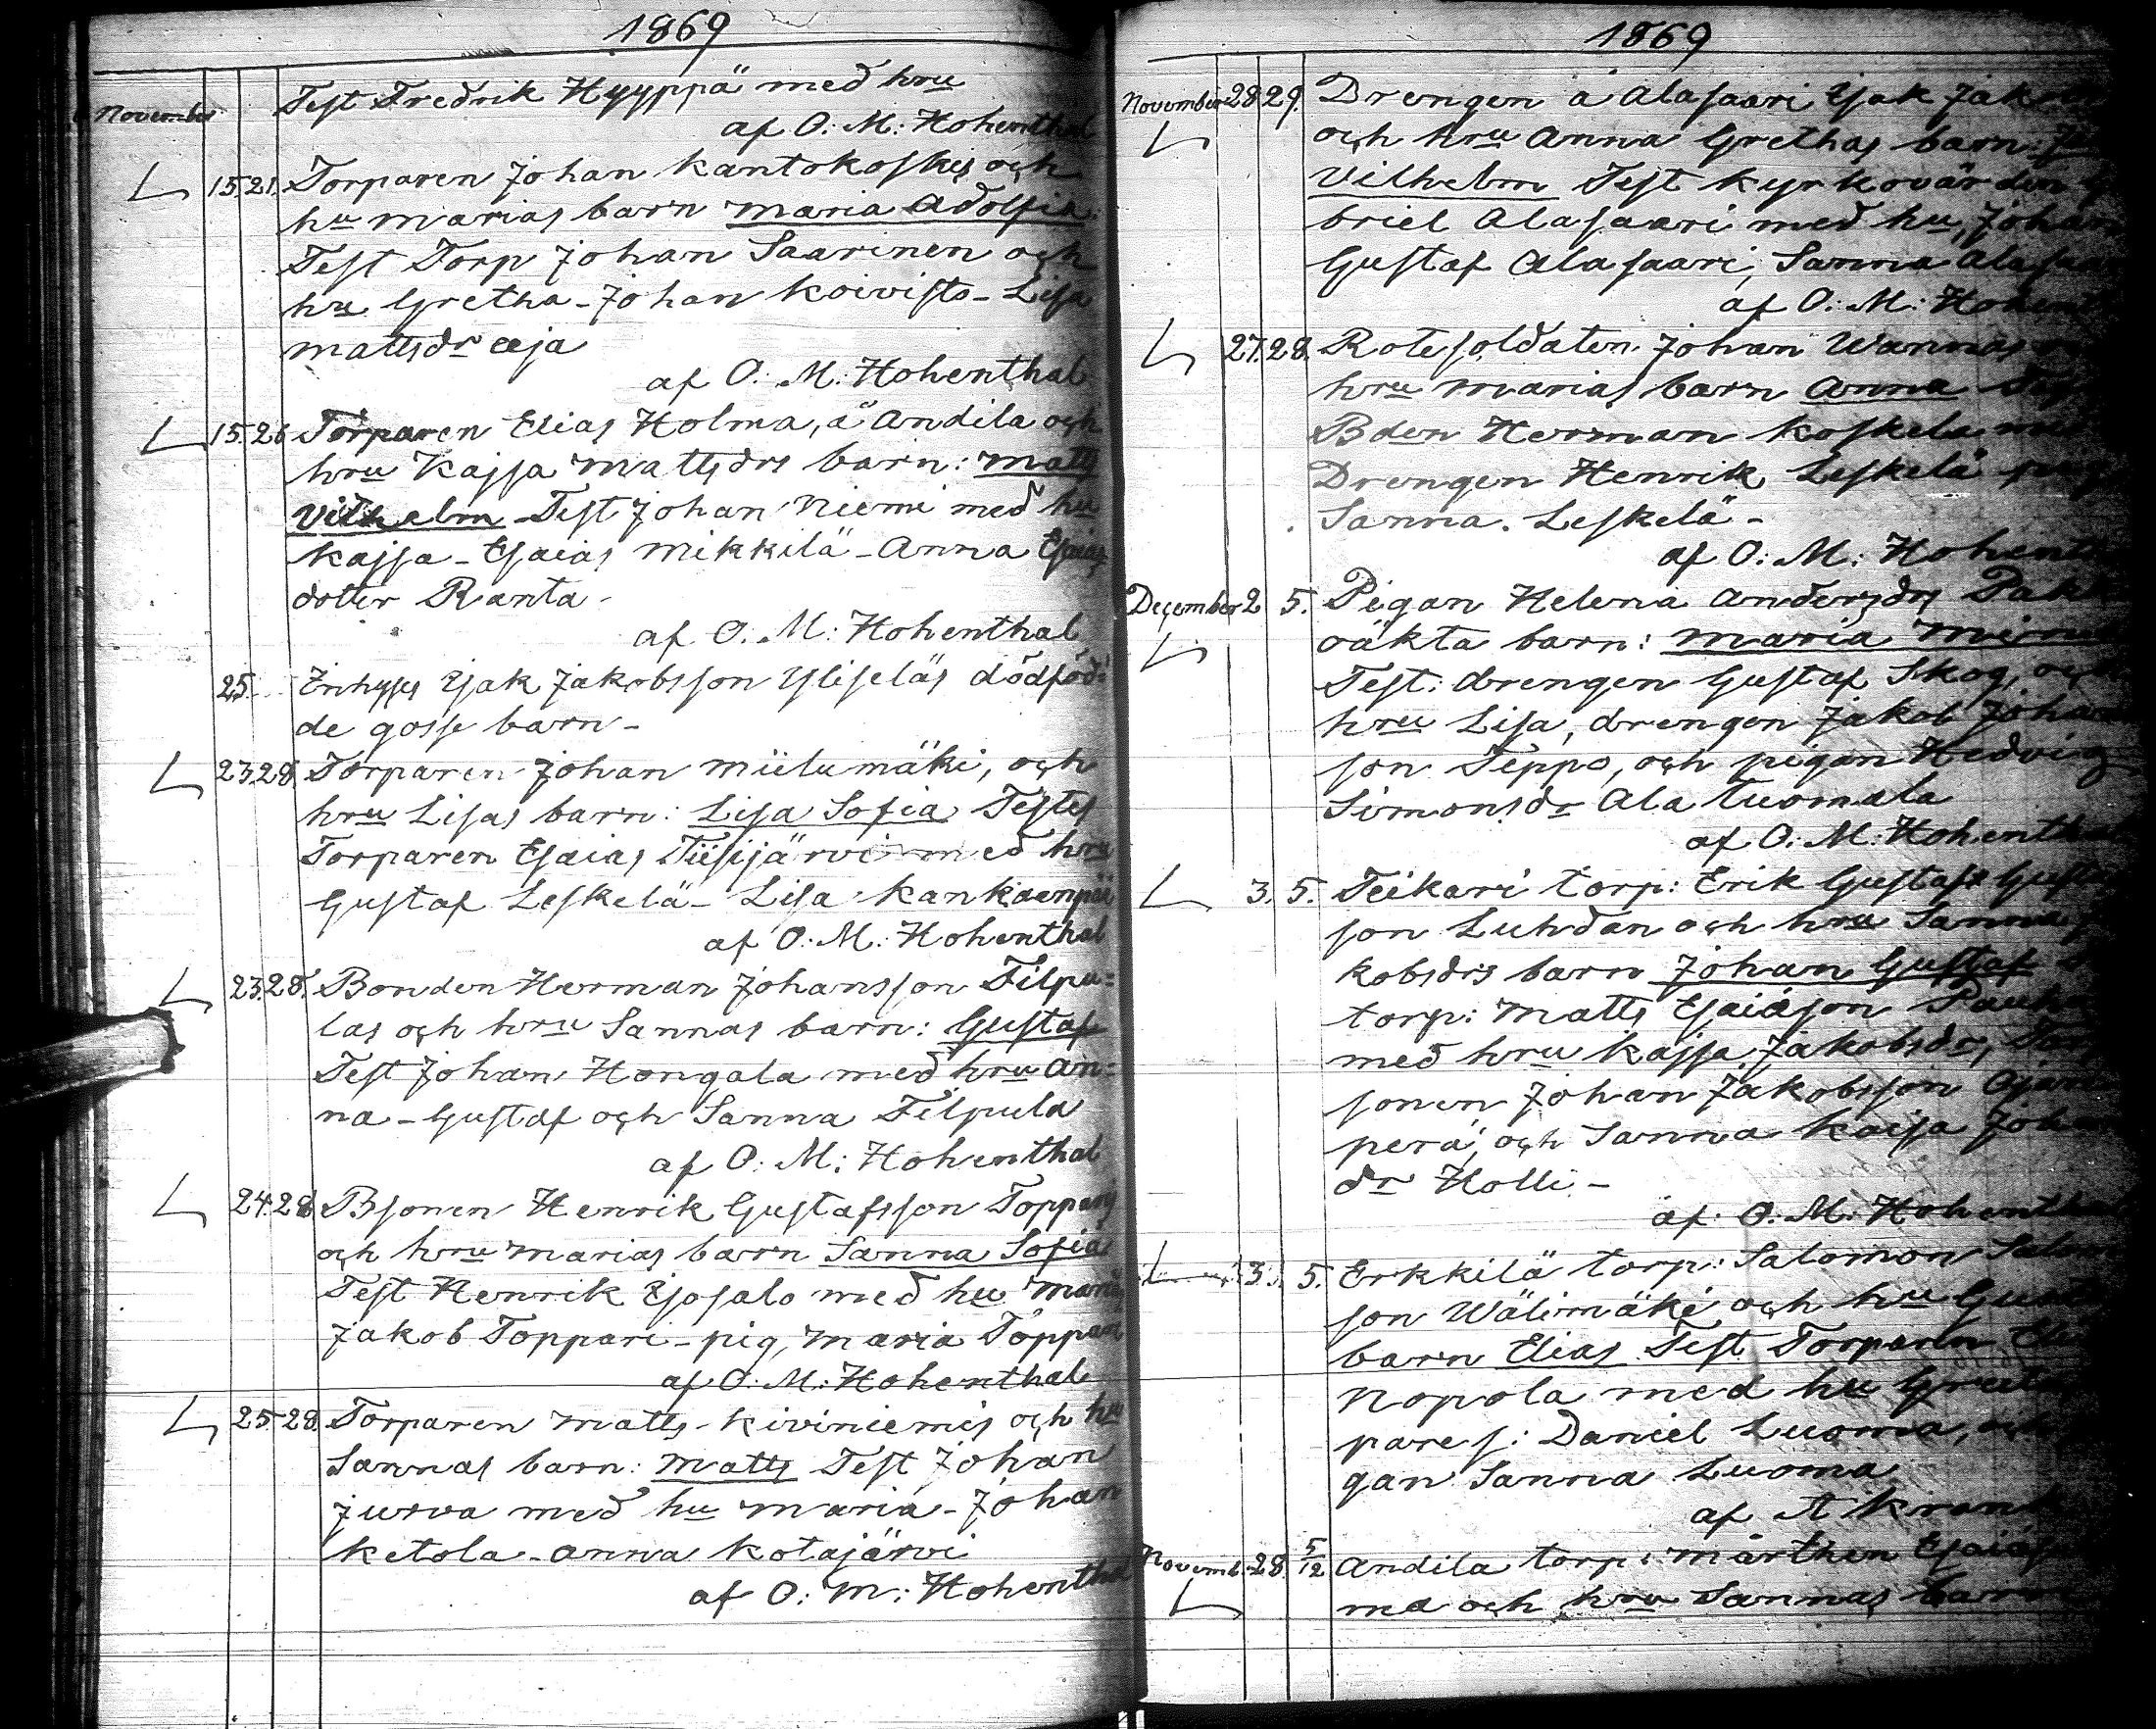 1869
November
Test Fredrik Hyyppä med hru
af O. M. Hohenthal
15. 21. Torparen Johan Kantokoskis och
hu Marias barn Maria Adolfia.
Test Torp Johan Saarinen och
hu Gretha - Johan Koivisto - Lisa
Mattsdr
af O. M. Hohenthal
15. 26 Torparen Elias Holma, å Andila och
hru Kajsa Mattsdrs barn: Matts
Vilhelm Test Johan Niemi med hu
Kajsa - Esaias Mikkilä - Anna Esaias
dotter Ranta -
af O. M. Hohenthal
25. Inhyses Isak Jakobsson Yliseläs dödföd:
de gosse barn -
23 28. Torparen Johan Miilumäki, och
hru Lisas barn: Lisa Sofia Testes
Torparen Esaias Tiisijärvi med hru
Gustaf Leskelä - Lisa Kankaanpää
af O. M. Hohenthal
23. 28. Bonden Herman Johansson Filpu=
las och hru Sannas barn: Gustaf
Test Johan Hongala med hru An=
na - Gustaf och Sanna Filpula
af O. M. Hohenthal
24. 28 Bsonen Henrik Gustafsson Topparis
och hru Marias barn Sanna Sofia
Test Henrik Isosalo med hu Maria,
Jakob Toppari - pig, Maria Toppari
af O. M. Hohenthal
25 28. Torparen Matts Kiviniemis och hu
Sannas barn: Matts Test Johan
Jurva med hu Maria - Johan
Ketola - Anna Kotajärvi
af O. M. Hohenthal
1869
November 28 29. Drengen å Alasaari Isak
och hru Anna Grethas barn:
Vilhelm Test Kyrkovärden
briel Alasaari med hu, Johan
Gustaf Alasaari, Sanna
af O. M.
27. 28. Rotesoldaten Johan Wannas
hru Marias barn Anna
Bden Herman Koskela
Drengen Henrik Leskelä
Sanna Leskelä -
af O. M.
December 2 5. Pigan Helena Andersdrs
oäkta barn: Maria
Test: drengen Gustaf Skog, och
hru Lisa, drengen Jakob Johans
son Teppo, och pigan Hedvig
Simonsdr Ala Tuomala
af O. M. Hohenthal
3. 5. Teikari torp: Erik Gustafs
son Luhdan och hru Sanna
kobsdrs barn Johan Gustaf
torp: Matts Esaiason
med hru Kajsa Jakobsdr,
sonen Johan Jakobsson
perä, och Sanna Kaisa
dr Holli -
af O. M. Hohenthal
3. 5. Erkkilä torp: Salomon
son Wälimäki och hru
barn Elias Test Torparen
Nopola med hu
pares: Daniel Luoma,
gan Sanna Luoma
af A
Novemb. 28. 5/12 Andila torp: Mårthen
ma och hru Sannas barn